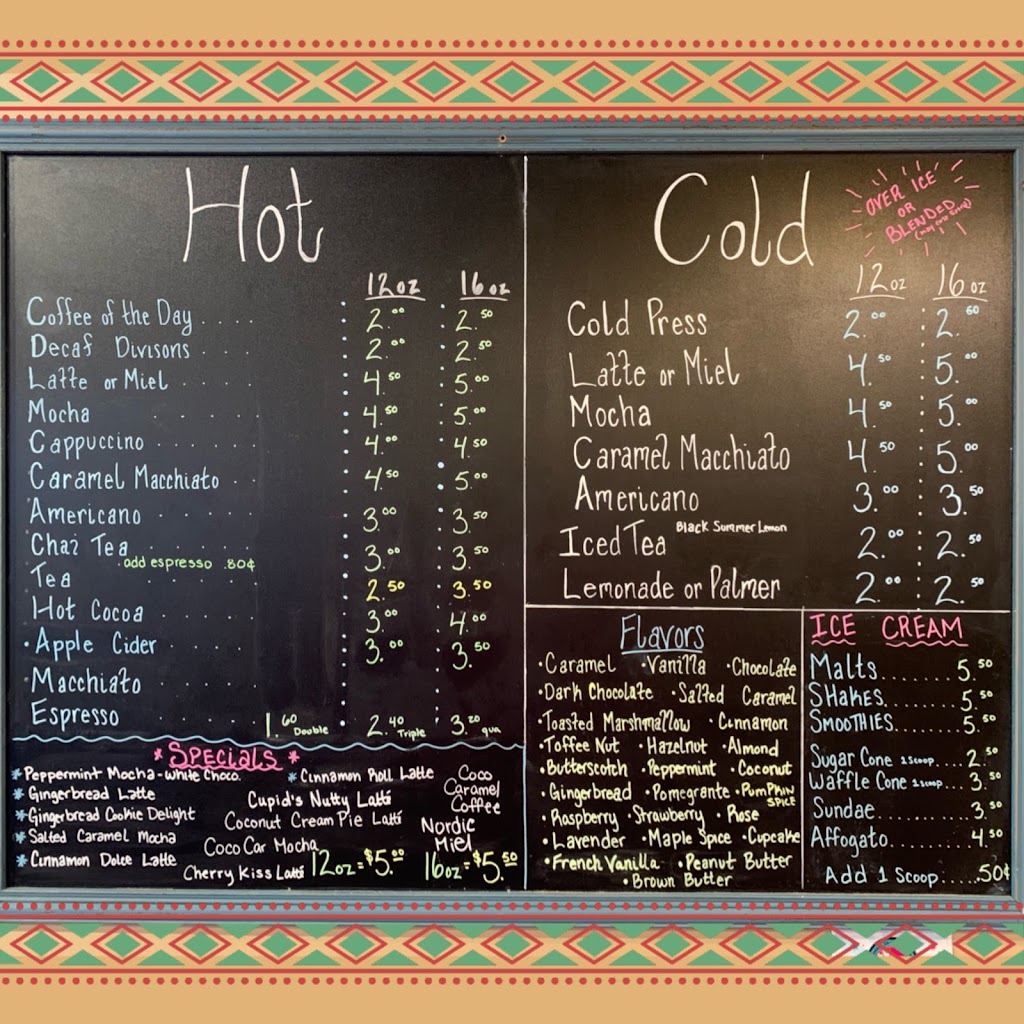 Hot
12oz 16oz
Coffee of the Day . . . . 2.00 2.50
Decaf Divisons . . . 2.00 2.50
Latte or Miel . . . . . 4.50 5.00
Mocha . . . . . 4.50 5.00
Cappuccino . . . . . . 4.00 4.50
Caramel Macchiato . . 4.50 5.00
Americano . . . . . 3.00 3.50
Chai Tea . . . . . . 3.00 3.50
add espresso .80¢
Tea . . . . . . 2.50 3.50
Hot Cocoa . . . . . 3.00 4.00
•Apple Cider . . . . . 3.00 3.50
Macchiato . . . . .
Espresso . . . . . . 1.60 Double 2.40 Triple 3.20 qua
*Specials*
*Peppermint Mocha-White Choco.
*Gingerbread Latte
*Gingerbread Cookie Delight
*Salted Caramel Mocha
*Cinnamon Dolce Latte
*Cinnamon Roll Latte
Cupid's Nutty Latte
Coconut Cream Pie Latte
Coco Car Mocha
Cherry Kiss Latte
Coco
Caramel
Coffee
Nordic
Miel
12oz=$5.00 16oz=$5.50
Cold
OVER ICE
OR
BLENDED
12oz 16oz
Cold Press 2.00 2.60
Latte or Miel 4.50 5.00
Mocha 4.50 5.00
Caramel Macchiato 4.50 5.00
Americano 3.00 3.50
Iced Tea Black Summer Lemon 2.00 2.50
Lemonade or Palmer 2.00 2.50
Flavors
•Caramel •Vanilla •Chocolate
•Dark Chocolate •Salted Caramel
•Toasted Marshmallow •Cinnamon
•Toffee Nut •Hazelnut •Almond
•Butterscotch •Peppermint •Coconut
•Gingerbread •Pomegrante •PUMPKIN SPICE
•Raspberry •Strawberry •Rose
•Lavender •Maple Spice •Cupcake
•French Vanilla •Peanut Butter
•Brown Butter
ICE CREAM
Malts........5.50
SHAKES.........5.50
SMOOTHIES.......5.50
Sugar Cone 1 Scoop....2.50
Waffle Cone 1 Scoop...3.50
Sundae..........3.50
Affogato........4.50
Add 1 Scoop.....50¢